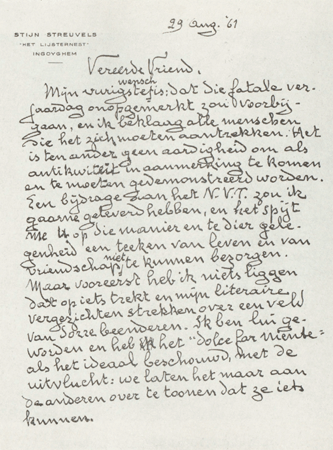 STIJN STREUVELS
"HET LIJSTERNEST"
INGOYGHEM
29 aug. '61
Vereerde Vriend,
wensch
Mijn vurigste is: dat die fatale ver-
jaardag onopgemerkt zou voorbij-
gaan, en ik beklaag alle menschen
die het zich moeten aantrekken. Het
is ten ander geen aardigheid om als
antikwiteit in aanmerking te komen
en te moeten gedemonstreerd worden.
Een bijdrage aan het N.V.T. zou ik
gaarne geleverd hebben, en het spijt
me U op die manier en te dier gele-
genheid een teeken van leven en van
vriendschap niet te kunnen bezorgen.
Maar vooreerst heb ik niets liggen
dat op iets trekt en mijn literaire
vergezichten strekken over een veld
van dorre beenderen. Ik ben lui ge-
worden en heb het "dolce far niente"
als het ideaal beschouwd, met de
uitvlucht: we laten het maar aan
de anderen over te toonen dat ze iets
kunnen.